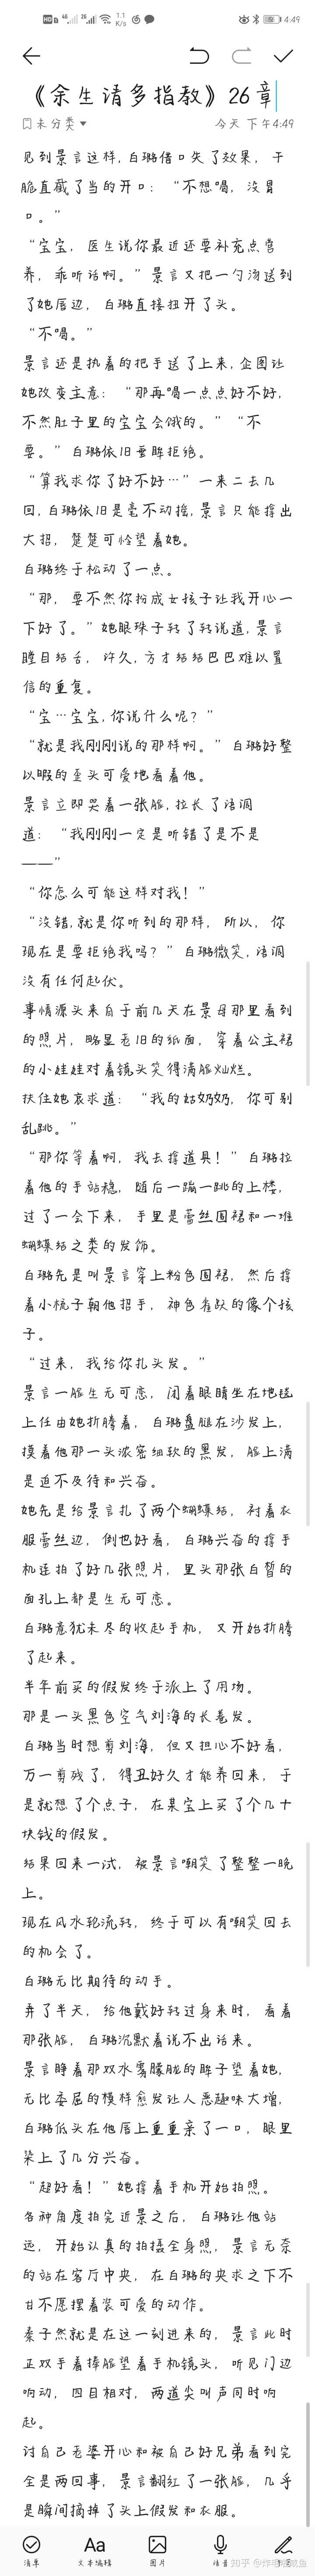 HD 46 26 1.1 K/s 52 4:49
《余生请多指教》26章
未分类
今天 下午4:49
见到景言这样,白璐借口失了效果,干
脆直截了当的开口:“不想喝,没胃
口。”
“宝宝,医生说你最近还要补充点营
养,乖听话啊。”景言又把一勺汤送到
了她唇边,白璐直接扭开了头。
“不喝。”
景言还是执着的把手送了上来,企图让
她改变主意:“那再喝一点点好不好,
不然肚子里的宝宝会饿的。”“不
要。”白璐依旧垂眸拒绝。
“算我求你了好不好…”一来二去几
回,白璐依旧是毫不动摇,景言只能拿出
大招,楚楚可怜望着她。
白璐终于松动了一点。
“那,要不然你扮成女孩子让我开心一
下好了。”她眼珠子转了转说道,景言
瞠目结舌,许久,方才结结巴巴难以置
信的重复。
“宝…宝宝,你说什么呢?”
“就是我刚刚说的那样啊。”白璐好整
以暇的歪头可爱地看着他。
景言立即哭着一张脸,拉长了语调
道:“我刚刚一定是听错了是不是
——”
“你怎么可能这样对我!”
“没错,就是你听到的那样,所以,你
现在是要拒绝我吗?”白璐微笑,语调
没有任何起伏。
事情源头来自于前几天在景母那里看到
的照片,略显老旧的纸面,穿着公主裙
的小娃娃对着镜头笑得满脸灿烂。
扶住她哀求道:“我的姑奶奶,你可别
乱跳。”
“那你等着啊,我去拿道具!”白璐拉
着他的手站稳,随后一蹦一跳的上楼,
过了一会下来,手里是蕾丝围裙和一堆
蝴蝶结之类的发饰。
白璐先是叫景言穿上粉色围裙,然后拿
着小梳子朝他招手,神色雀跃的像个孩
子。
“过来,我给你扎头发。”
景言一脸生无可恋,闭着眼睛坐在地毯
上任由她折腾着,白璐盘腿在沙发上,
摸着他那一头浓密细软的黑发,脸上满
是迫不及待和兴奋。
她先是给景言扎了两个蝴蝶结,衬着衣
服蕾丝边,倒也好看,白璐兴奋的拿手
机连拍了好几张照片,里头那张白皙的
面孔上都是生无可恋。
白璐意犹未尽的收起手机,又开始折腾
了起来。
半年前买的假发终于派上了用场。
那是一头黑色空气刘海的长卷发。
白璐当时想剪刘海,但又担心不好看,
万一剪残了,得丑好久才能养回来,于
是就想了个点子,在某宝上买了个几十
块钱的假发。
结果回来一试,被景言嘲笑了整整一晚
上。
现在风水轮流转,终于可以有嘲笑回去
的机会了。
白璐无比期待的动手。
弄了半天,给他戴好转过身来时,看着
那张脸,白璐沉默着说不出话来。
景言睁着那双水雾朦胧的眸子望着她,
无比委屈的模样愈发让人恶趣味大增,
白璐低头在他唇上重重亲了一口,眼里
染上了几分兴奋。
“超好看!”她拿着手机开始拍照。
各种角度拍完近景之后,白璐让他站
远,开始认真的拍摄全身照,景言无奈
的站在客厅中央,在白璐的央求之下不
甘不愿摆着装可爱的动作。
秦子然就是在这一刻进来的,景言此时
正双手着捧脸望着手机镜头,听见门边
响动,四目相对,两道尖叫声同时响
起。
讨自己老婆开心和被自己好兄弟看到完
全是两回事,景言翻红了一张脸,几乎
是瞬间摘掉了头上假发和衣服。
Aa
清单 文本编辑 图片 语音
知乎